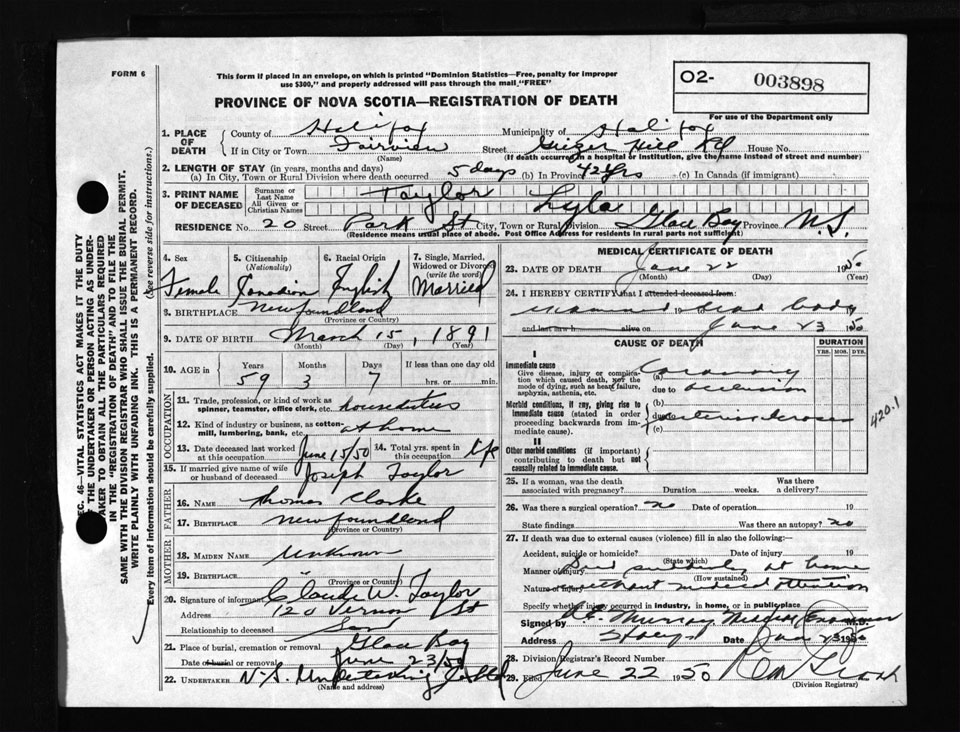 FORM 6
This form if placed in an envelope, on which is printed "Dominion Statistics—Free, penalty for improper
use $300," and properly addressed will pass through the mail "FREE"
O2- 003898
For use of the Department only
PROVINCE OF NOVA SCOTIA—REGISTRATION OF DEATH
1. PLACE OF DEATH County of Halifax Municipality of Halifax
If in City or Town Fairview Street Geizer Hill Rd House No.
(Name) (If death occurred in a hospital or institution, give the name instead of street and number)
2. LENGTH OF STAY (in years, months and days)
(a) In City, Town or Rural Division where death occurred 5 days (b) In Province 42 yrs (c) In Canada (if immigrant)
3. PRINT NAME OF DECEASED
Surname or Last Name Taylor
All Given or Christian Names Lyla
RESIDENCE No. 20 Street Park St City, Town or Rural Division Glace Bay Province N.S.
(Residence means usual place of abode. Post Office Address for residents in rural parts not sufficient)
4. Sex Female
5. Citizenship (Nationality) Canadian
6. Racial Origin English
7. Single, Married, Widowed or Divorced (write the word) Married
8. BIRTHPLACE Newfoundland
(Province or Country)
9. DATE OF BIRTH March 15, 1891
(Month) (Day) (Year)
10. AGE in Years Months Days If less than one day old
59 3 7 hrs. or min.
OCCUPATION
11. Trade, profession, or kind of work as
spinner, teamster, office clerk, etc. housduties
12. Kind of industry or business, as cotton-
mill, lumbering, bank, etc. at home
13. Date deceased last worked at this occupation June 15/50
14. Total yrs. spent in this occupation life
15. If married give name of wife
or husband of deceased Joseph Taylor
FATHER
16. Name Thomas Clarke
17. Birthplace Newfoundland
(Province or Country)
MOTHER
18. Maiden Name Unknown
19. Birthplace
(Province or Country)
20. Signature of informant Claude W. Taylor
Address 120 Vernon St
Relationship to deceased Son
21. Place of burial, cremation or removal Glace Bay
Date of burial or removal June 23/50
22. Undertaker N.S. Undertaking
(Name and address)
MEDICAL CERTIFICATE OF DEATH
23. DATE OF DEATH June 22 1950
(Month) (Day)
24. I HEREBY CERTIFY that I attended deceased from:
examined 19 dead body 19
and last saw h alive on June 23 50
CAUSE OF DEATH
DURATION
YRS. MOS. DYS.
I
Immediate cause
Give disease, injury or complica-
tion which caused death, not the
mode of dying, such as heart failure,
asphyxia, asthenia, etc.
(a) Coronary
due to occlusion
Morbid conditions, if any, giving rise to
immediate cause (stated in order
proceeding backwards from im-
mediate cause).
(b)
due to arteriosclerosis
(c)
420.1
II
Other morbid conditions (if important)
contributing to death but not
causally related to immediate cause.
25. If a woman, was the death
associated with pregnancy? Duration weeks. Was there
a delivery?
26. Was there a surgical operation? no Date of operation 19
State findings Was there an autopsy? no
27. If death was due to external causes (violence) fill in also the following:
Accident, suicide or homicide? Date of injury 19
(State which)
Manner of injury Died suddenly at home
(How sustained)
Nature of injury without medical attention
Specify whether injury occurred in industry, in home, or in public place
Signed by Murray Medical Examiner M.D.
Address Date June 23 1950
28. Division Registrar's Record Number
29. Filed June 22 1950
(Division Registrar)
SEC. 46—VITAL STATISTICS ACT MAKES IT THE DUTY
OF THE UNDERTAKER OR PERSON ACTING AS UNDER-
TAKER TO OBTAIN ALL THE PARTICULARS REQUIRED
IN THE "REGISTRATION OF DEATH" AND TO FILE THE
SAME WITH THE DIVISION REGISTRAR WHO SHALL ISSUE THE BURIAL PERMIT.
WRITE PLAINLY WITH UNFADING INK. THIS IS A PERMANENT RECORD.
Every item of information should be carefully supplied. (See reverse side for instructions.)